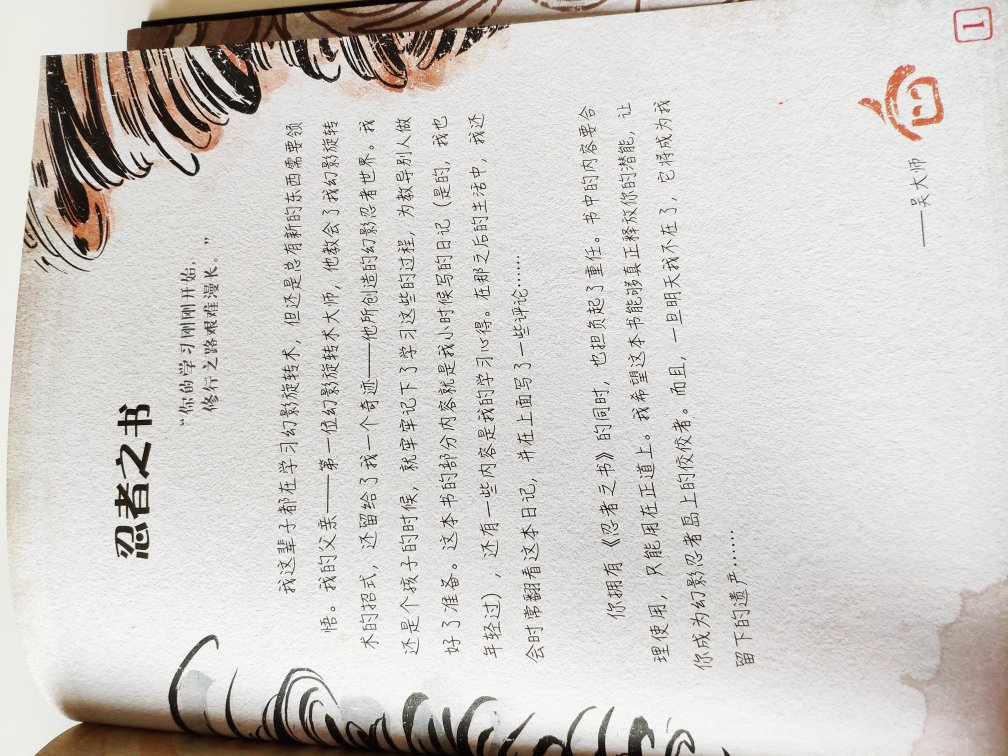 忍者之书
“你的学习刚刚开始,
修行之路艰难漫长。”
我这辈子都在学习幻影旋转术，但还是总有新的东西需要领
悟。我的父亲——第一位幻影旋转术大师，他教会了我幻影旋转
术的招式，还留给了我一个奇迹——他所创造的幻影忍者世界。我
还是个孩子的时候，就牢牢记下了学习这些的过程，为教导别人做
好了准备。这本书的部分内容就是我小时候写的日记（是的，我也
年轻过），还有一些内容是我的学习心得。在那之后的生活中，我还
会时常翻看这本日记，并在上面写了一些评论……
你拥有《忍者之书》的同时，也担负起了重任。书中的内容要合
理使用，只能用在正道上。我希望这本书能够真正释放你的潜能，让
你成为幻影忍者岛上的佼佼者。而且，一旦明天我不在了，它将成为我
留下的遗产……
——吴大师
1